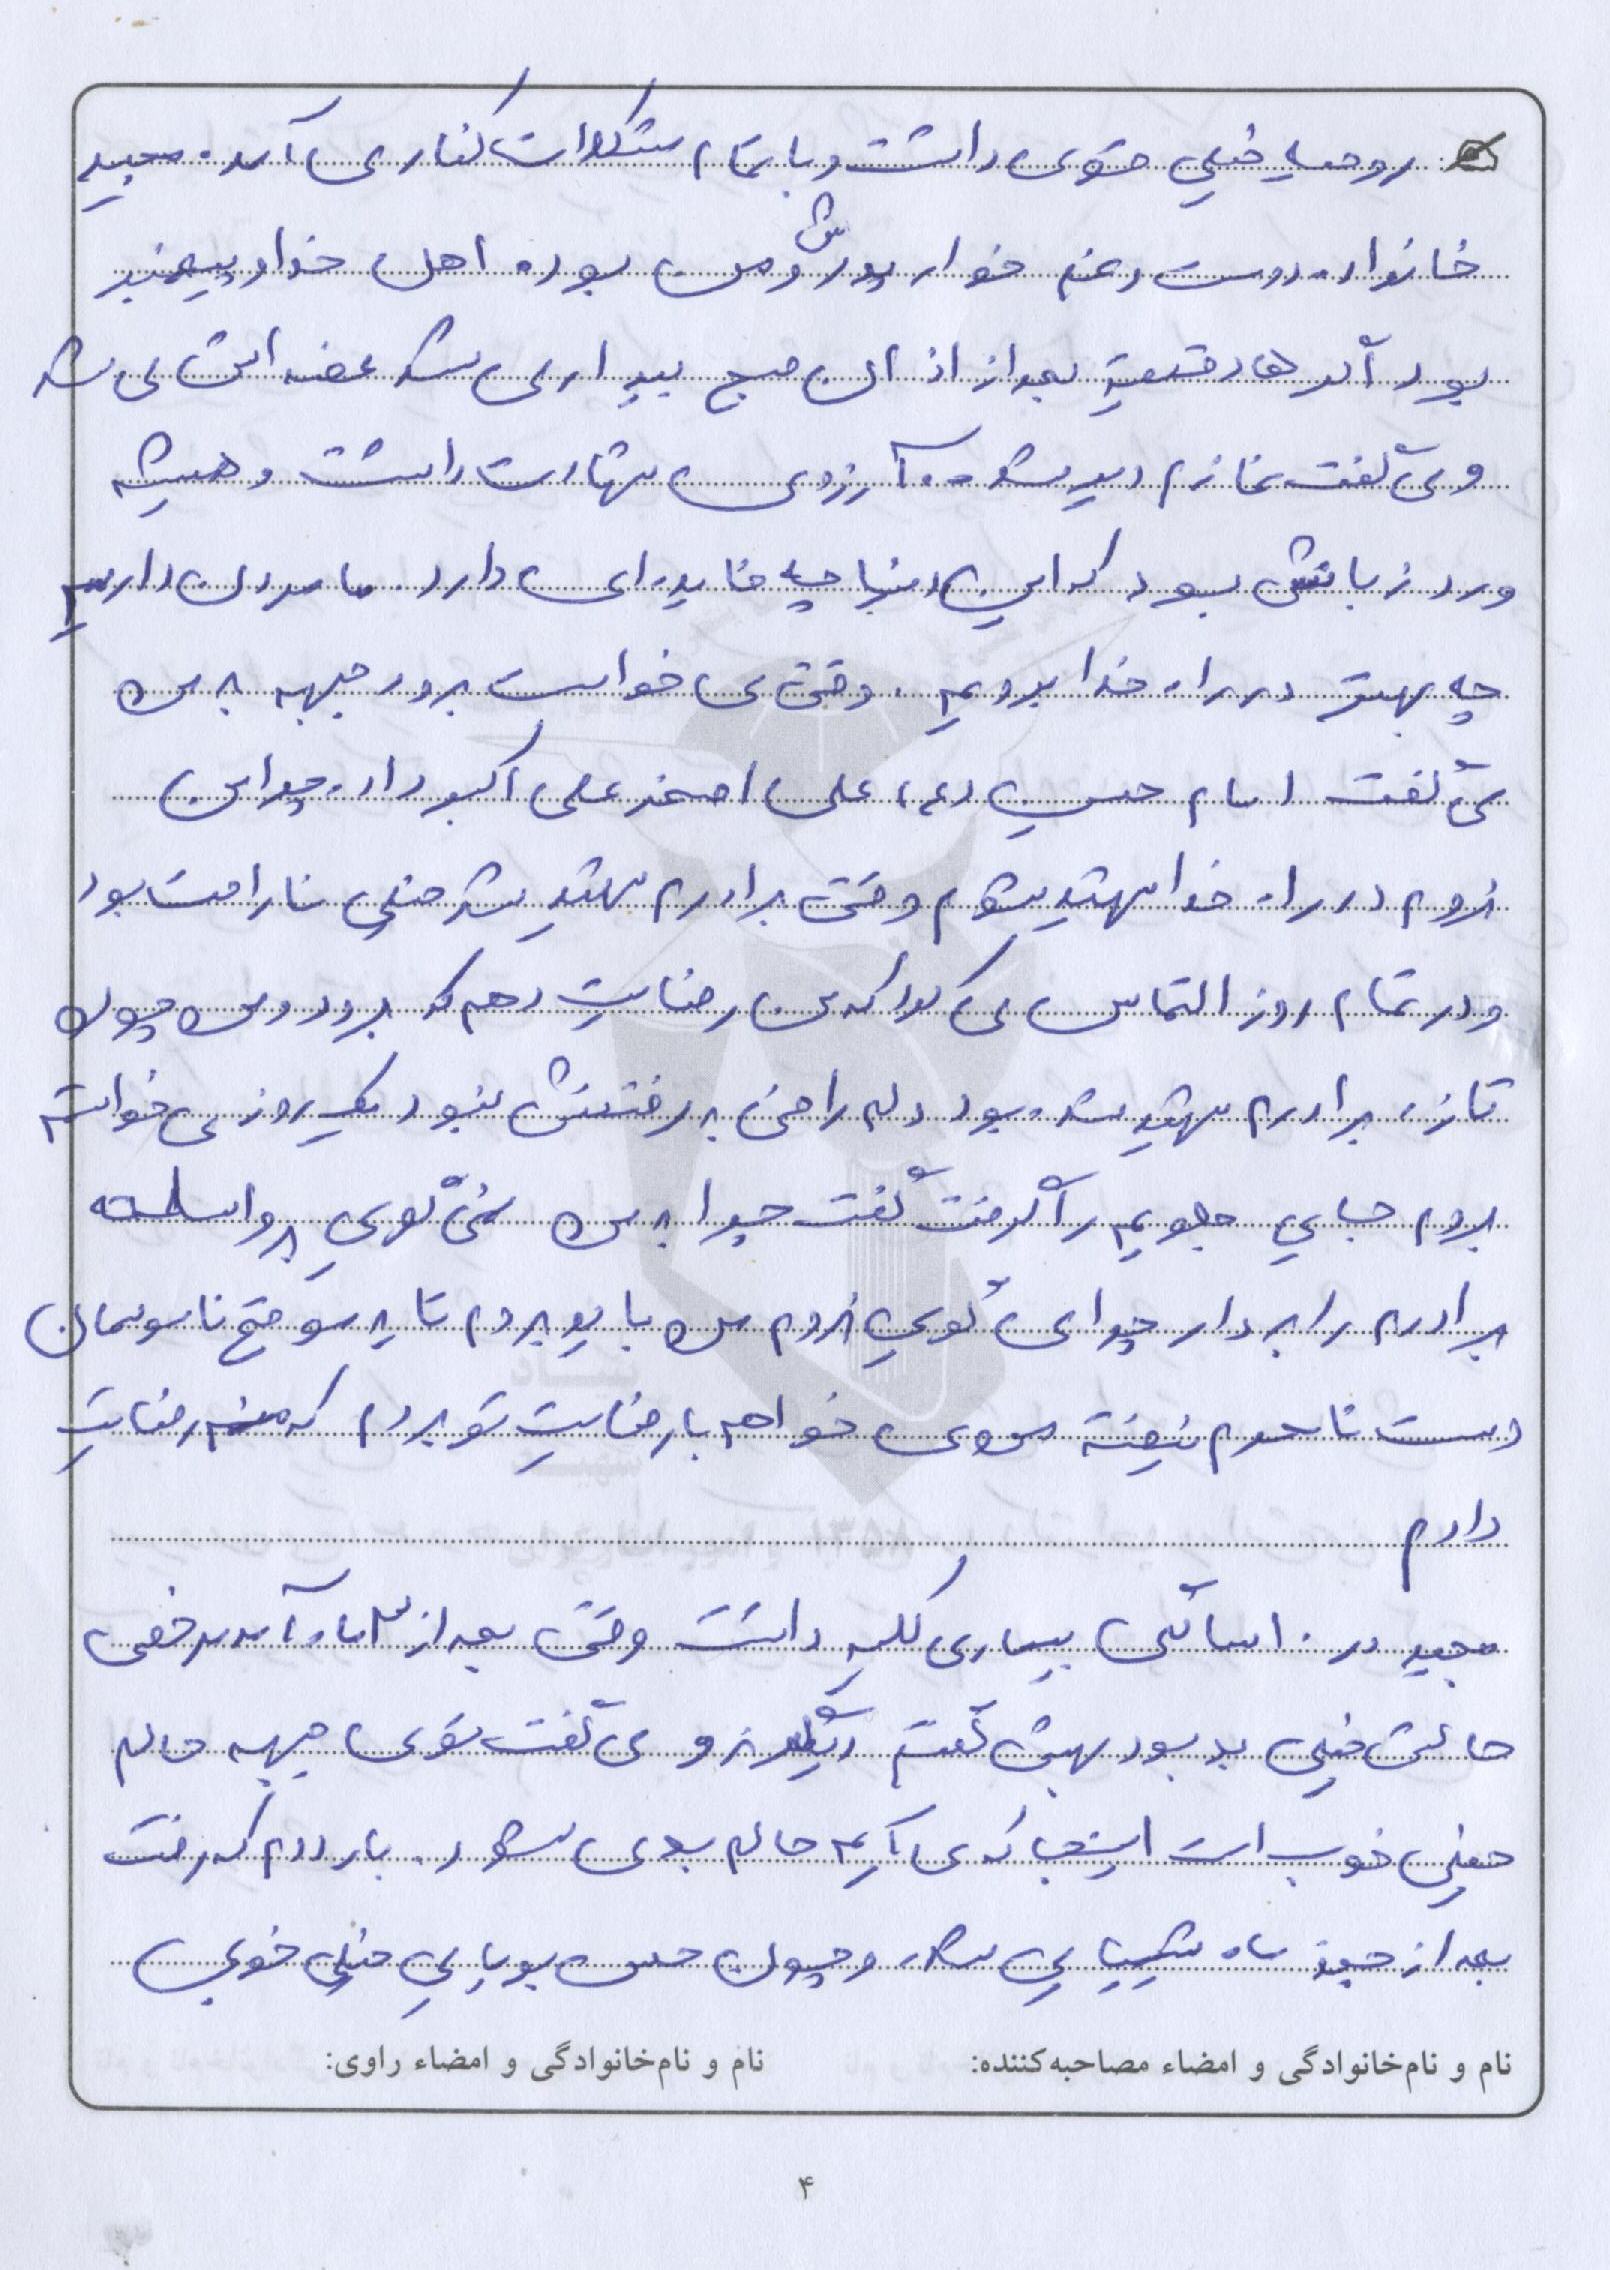 روحیه خیلی قوی داشت و با تمام مشکلات کنار می آمد. مجید
خانواده دوست و غم خوار پدرش و من بوده اهل خدا و پیغمبر
بود اگر ها دقیقه بعد از اذان صبح بیدار می شد غصه اش می شد
و می گفت نمازم دیر شده. آرزوی شهادت داشت و همیشه
ورد زبانش بود که این دنیا چه فایده ای دارد. ما مردن داریم
چه بهتر در راه خدا برویم. وقتی می خواست برود جبهه به من
می گفت امام حسین (ع)، علی اصغر علی اکبر داده چرا من
نروم در راه خدا شهید بشوم وقتی برادرم شهید شد خیلی ناراحت بود
و در تمام روز التماس می کرد که من رضایت دهم که برود و من چون
تازه برادرم شهید شده بود دلم راضی به رفتنش نبود یک روز می خواستم
بروم جایی جلویم را گرفت گفت چرا به من نمی گویی برو اسلحه
برادرم را بردار چرا می گویی نروم من باید بروم تا یه موقع ناموسمان
دست نامحرم نیفته من می خواهم با رضایت تو بروم که منم رضایت
دادم
مجید در ۱۰ سالگی بیماری کلیه داشت وقتی بعد از ۳ ماه آمد مرخصی
حالش خیلی بد بود بهش گفتم دیگر نرو می گفت توی جبهه حالم
خیلی خوب است اینجا که می آیم حالم بد می شود. بار دوم که رفت
بعد از چند ماه شیمیایی شد، و چون حس بویایی خیلی خوبی
نام و نام‌خانوادگی و امضاء مصاحبه‌کننده:
نام و نام‌خانوادگی و امضاء راوی:
۴